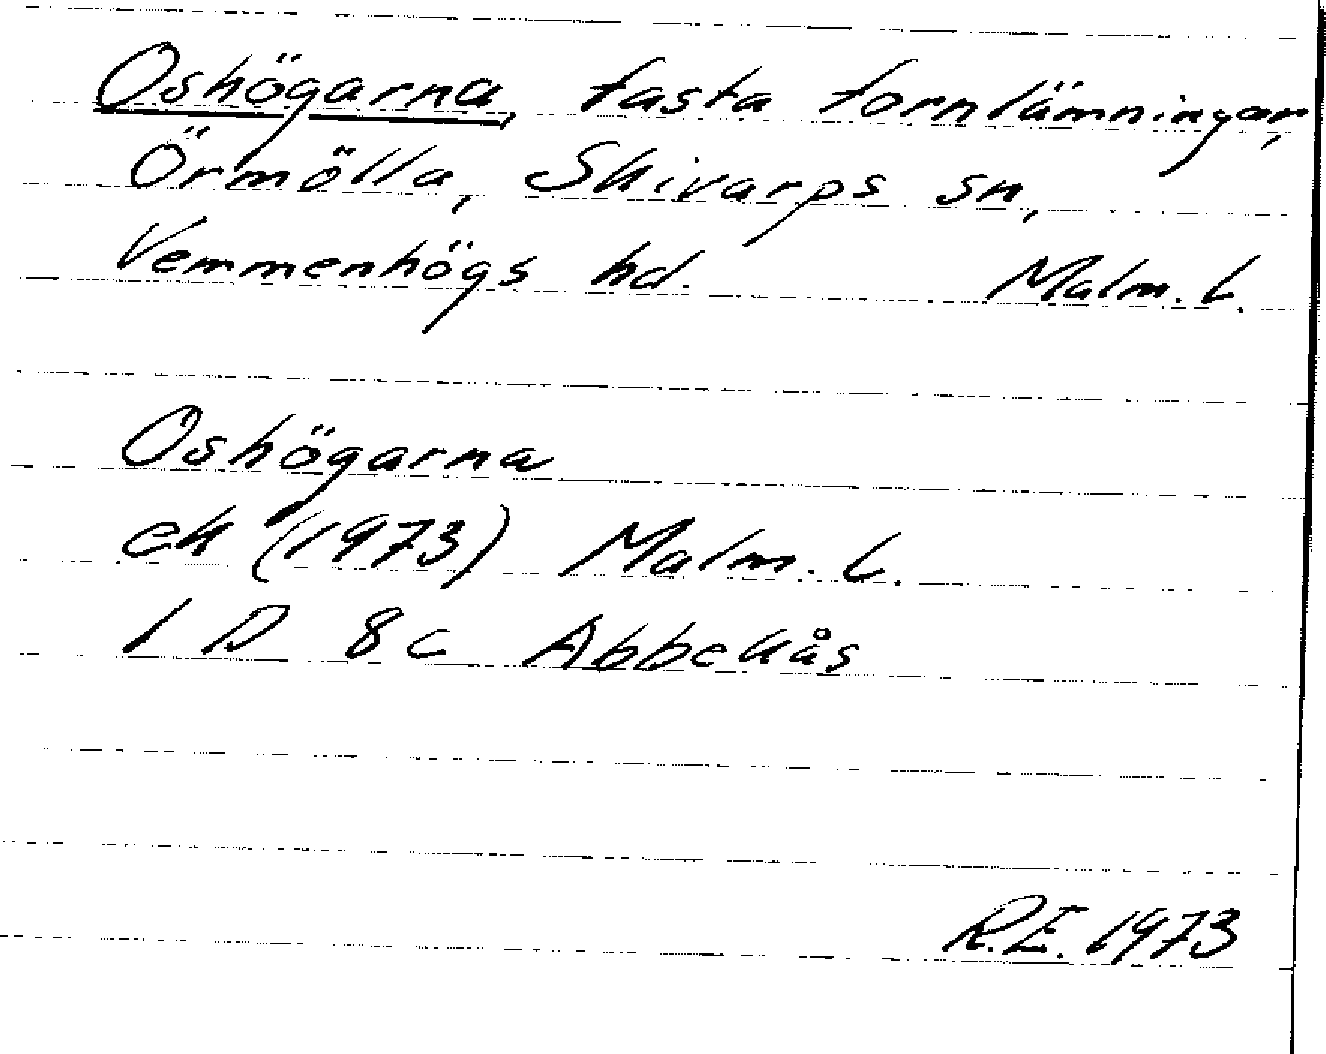 Oshögarna, fasta fornlämningar,
Örmölla, Skivarps sn,
Vemmenhögs hd. Malm. L.
Oshögarna
ek (1973) Malm. L.
1 D 8c Abbekås
R.E. 1973